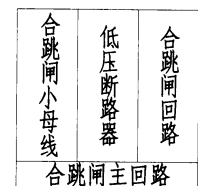 合跳闸小母线
低压断路器
合跳闸回路
合跳闸主回路